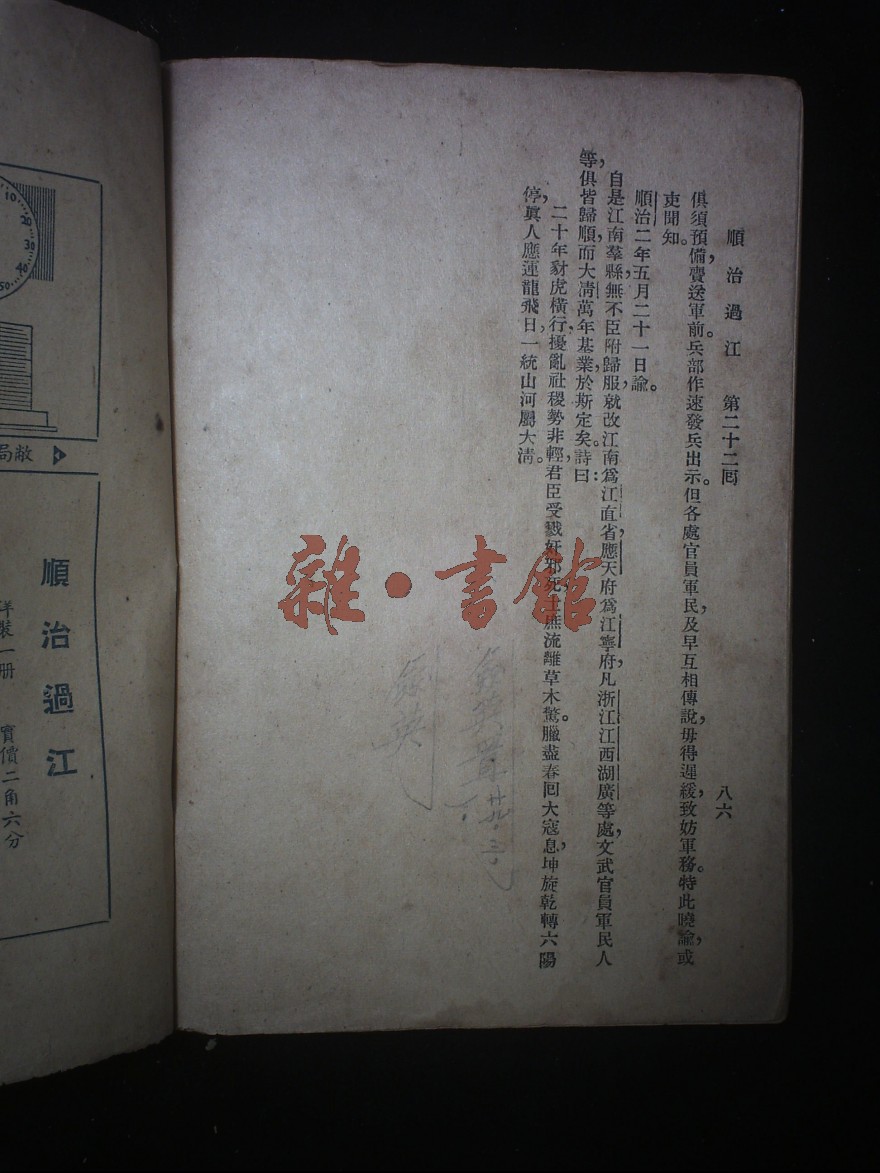 順治過江　第二十二囘　八六
俱須預備賫送軍前。兵部作速發兵出示。但各處官員軍民，及早互相傳說，毋得遲緩，致妨軍務。特此曉諭，或
吏聞知。
順治二年五月二十一日諭。
自是江南羣縣，無不臣附歸服，就改江南爲江直省，應天府爲江寧府，凡浙江江西湖廣等處，文武官員軍民人
等，俱皆歸順，而大淸萬年基業，於斯定矣。詩曰：
二十年豺虎橫行，擾亂社稷勢非輕，君臣受戮奸邪死，士庶流離草木驚。臘盡春囘大寇息，坤旋乾轉六陽
停，眞人應運龍飛日，一統山河屬大淸。
雜·書館
10
20
30
40
50
敝局
順治過江
洋裝一册　實價二角六分